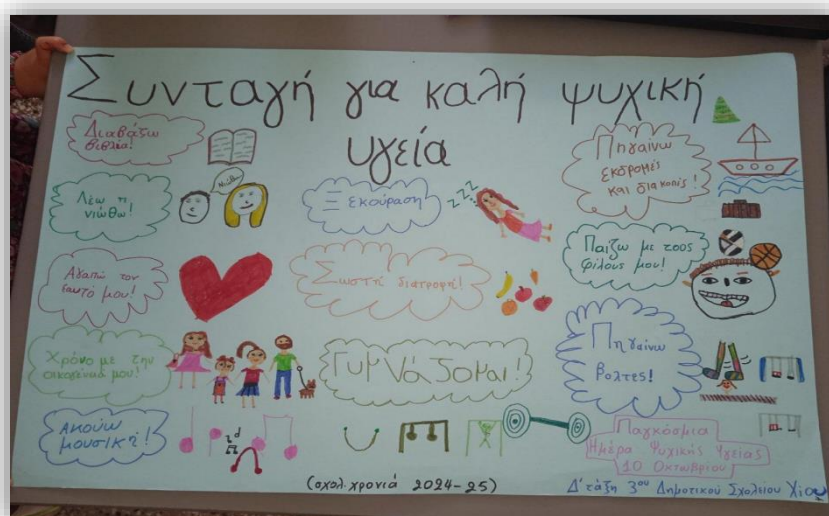 Συνταγή για καλή ψυχική
υγεία
Διαβάζω
βιβλία!
Λέω τι
νιώθω!
Νιώθω
Αγαπώ τον
εαυτό μου!
Χρόνο με την
οικογένειά μου!
Ακούω
μουσική!
Ξεκούραση
ZZZ
Σωστή διατροφή!
Γυμνάζομαι!
Πηγαίνω
εκδρομές
και διακοπές!
Παίζω με τους
φίλους μου!
Πηγαίνω
βόλτες!
Παγκόσμια
Ημέρα Ψυχικής Υγείας
10 Οκτωβρίου
(σχολ. χρονιά 2024-25)
Δ' τάξη 3ου Δημοτικού Σχολείου Χίου